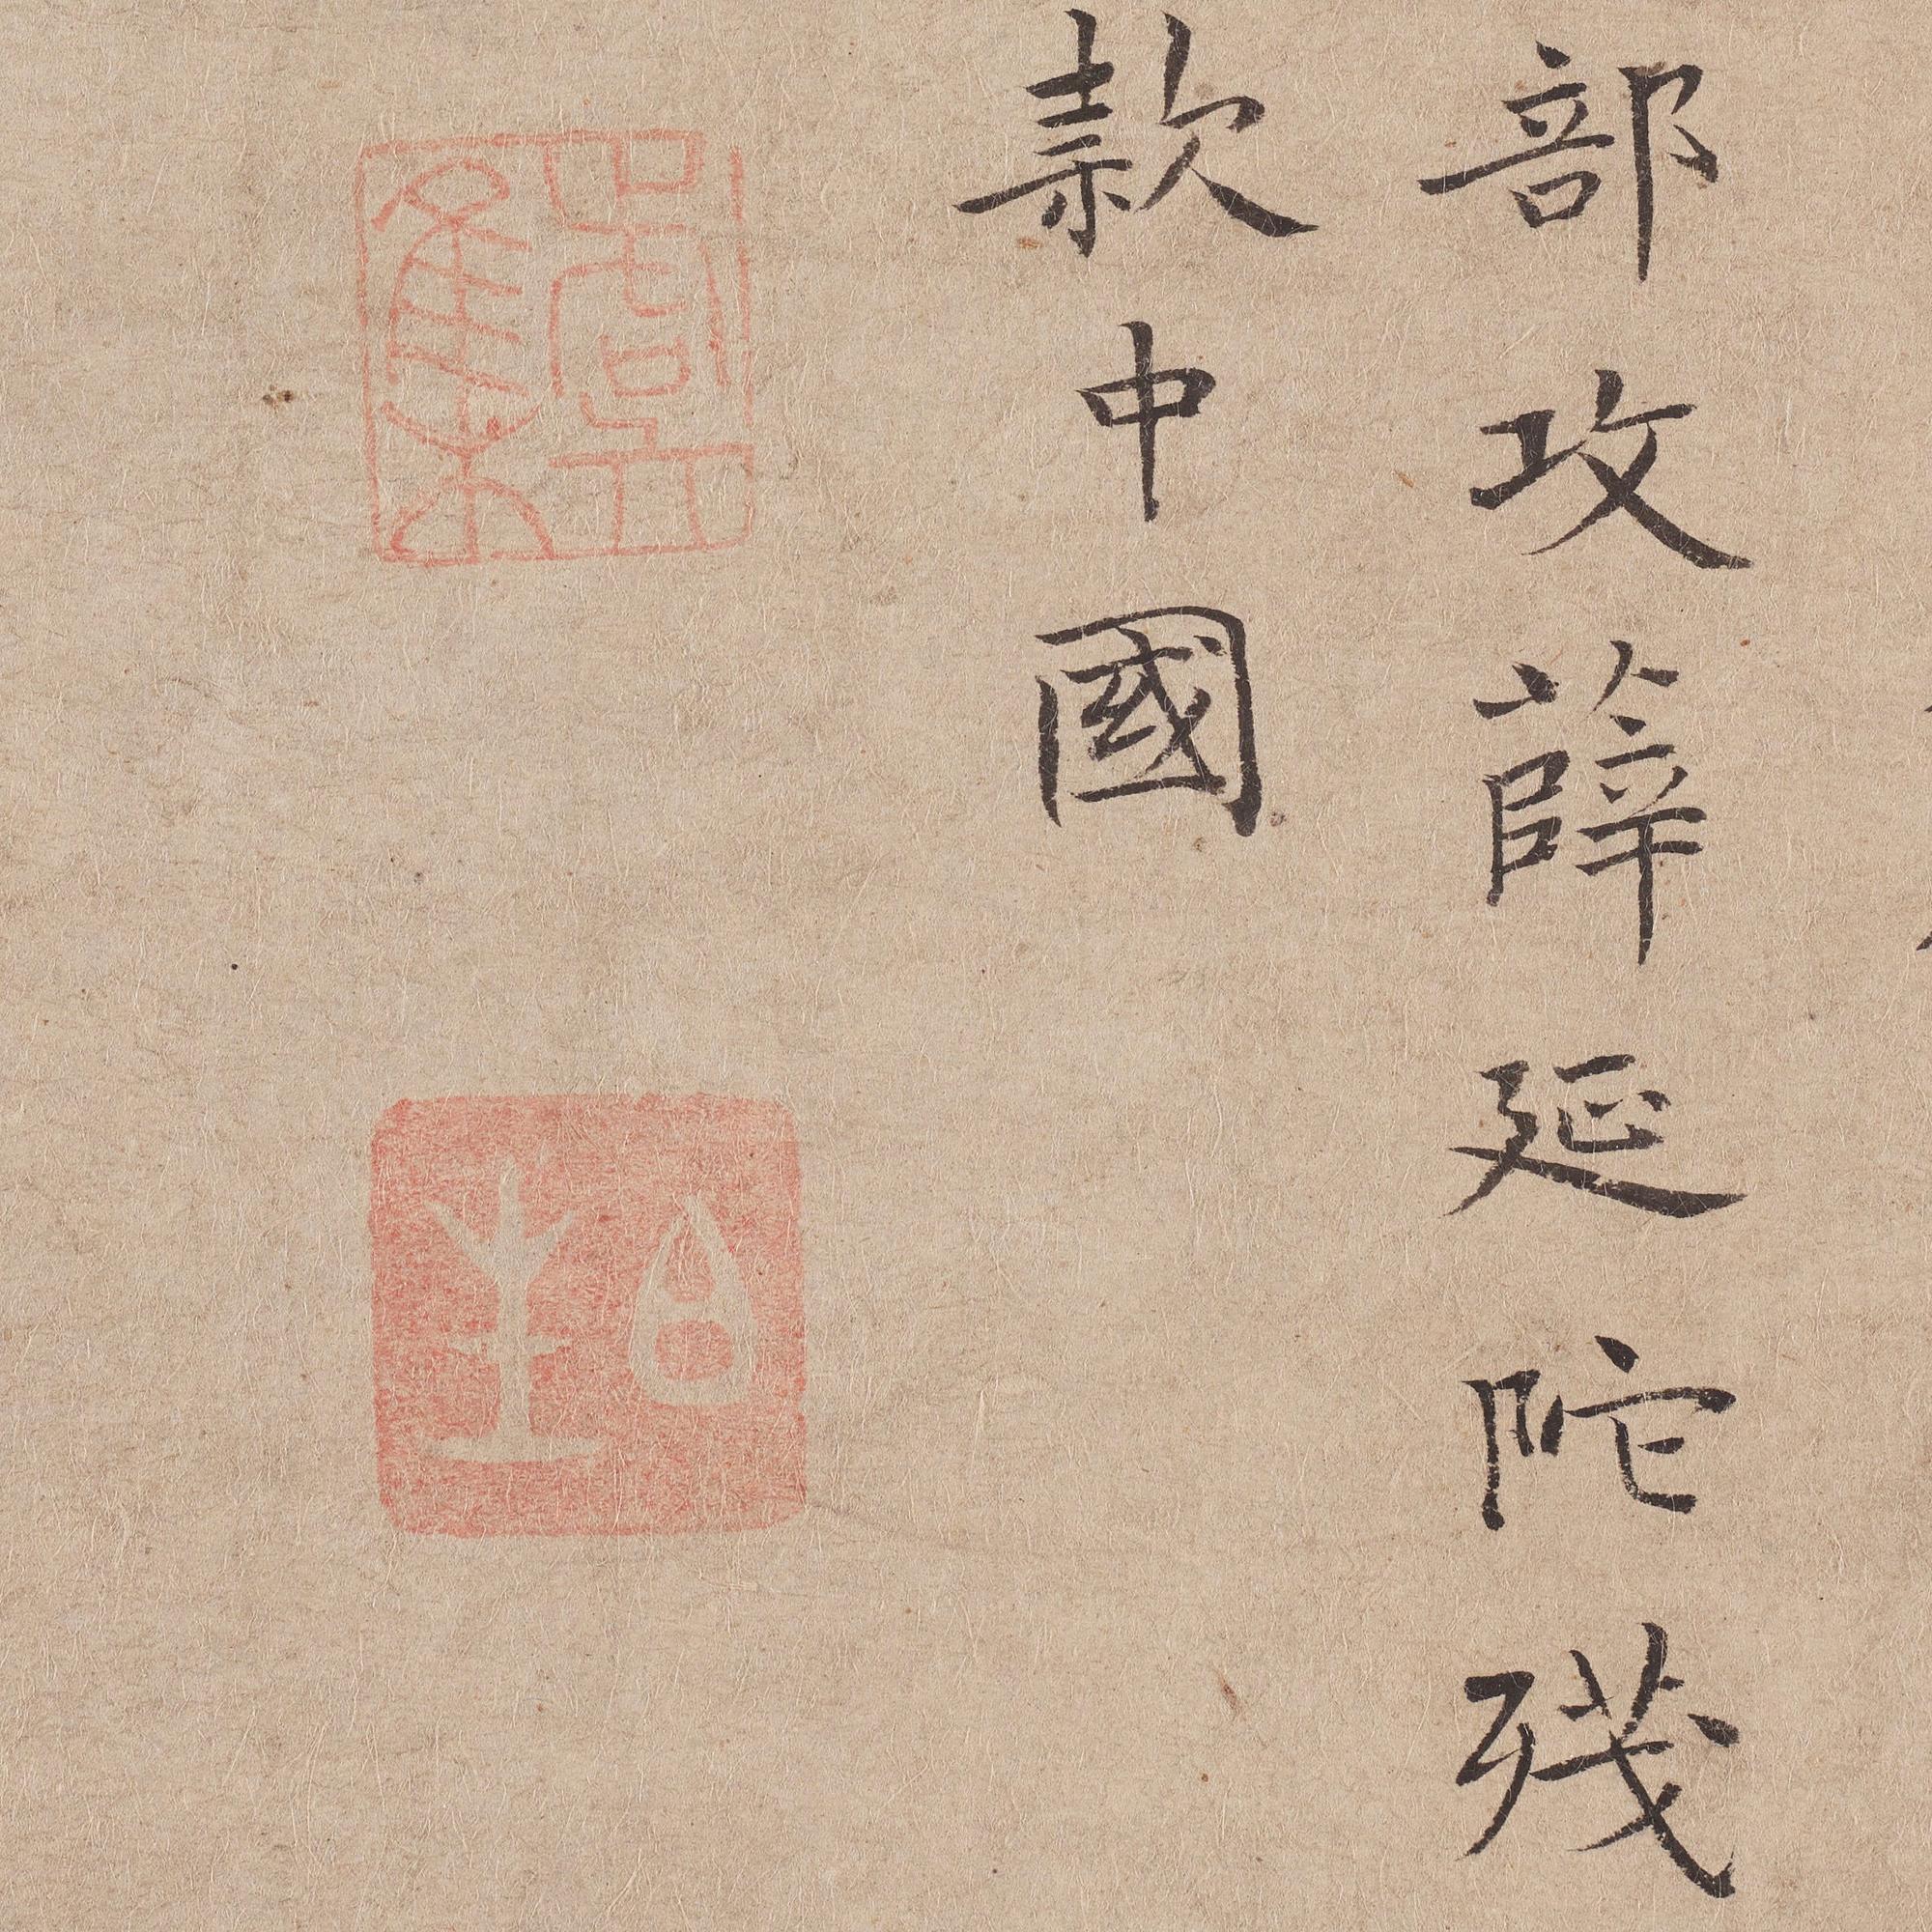 部攻薛延陀殘
款中國